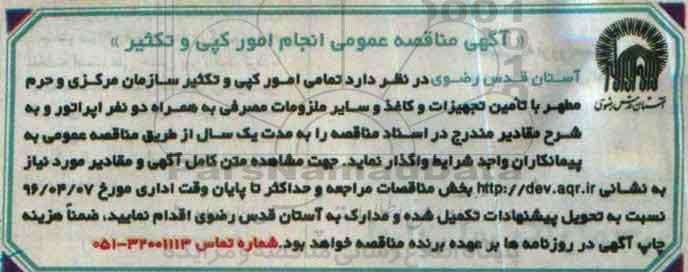 « آگهی مناقصه عمومی انجام امور کپی و تکثیر »
آستان قدس رضوی
آستان قدس رضوی در نظر دارد تمامی امور کپی و تکثیر سازمان مرکزی و حرم
مطهر با تأمین تجهیزات و کاغذ و سایر ملزومات مصرفی به همراه دو نفر اپراتور و به
شرح مقادیر مندرج در اسناد مناقصه را به مدت یک سال از طریق مناقصه عمومی به
پیمانکاران واجد شرایط واگذار نماید. جهت مشاهده متن کامل آگهی و مقادیر مورد نیاز
به نشانی http://dev.aqr.ir بخش مناقصات مراجعه و حداکثر تا پایان وقت اداری مورخ ۹۶/۰۴/۰۷
نسبت به تحویل پیشنهادات تکمیل شده و مدارک به آستان قدس رضوی اقدام نمایید، ضمناً هزینه
چاپ آگهی در روزنامه ها بر عهده برنده مناقصه خواهد بود. شماره تماس ۳۲۰۰۱۱۱۳-۰۵۱
ParsNamadData